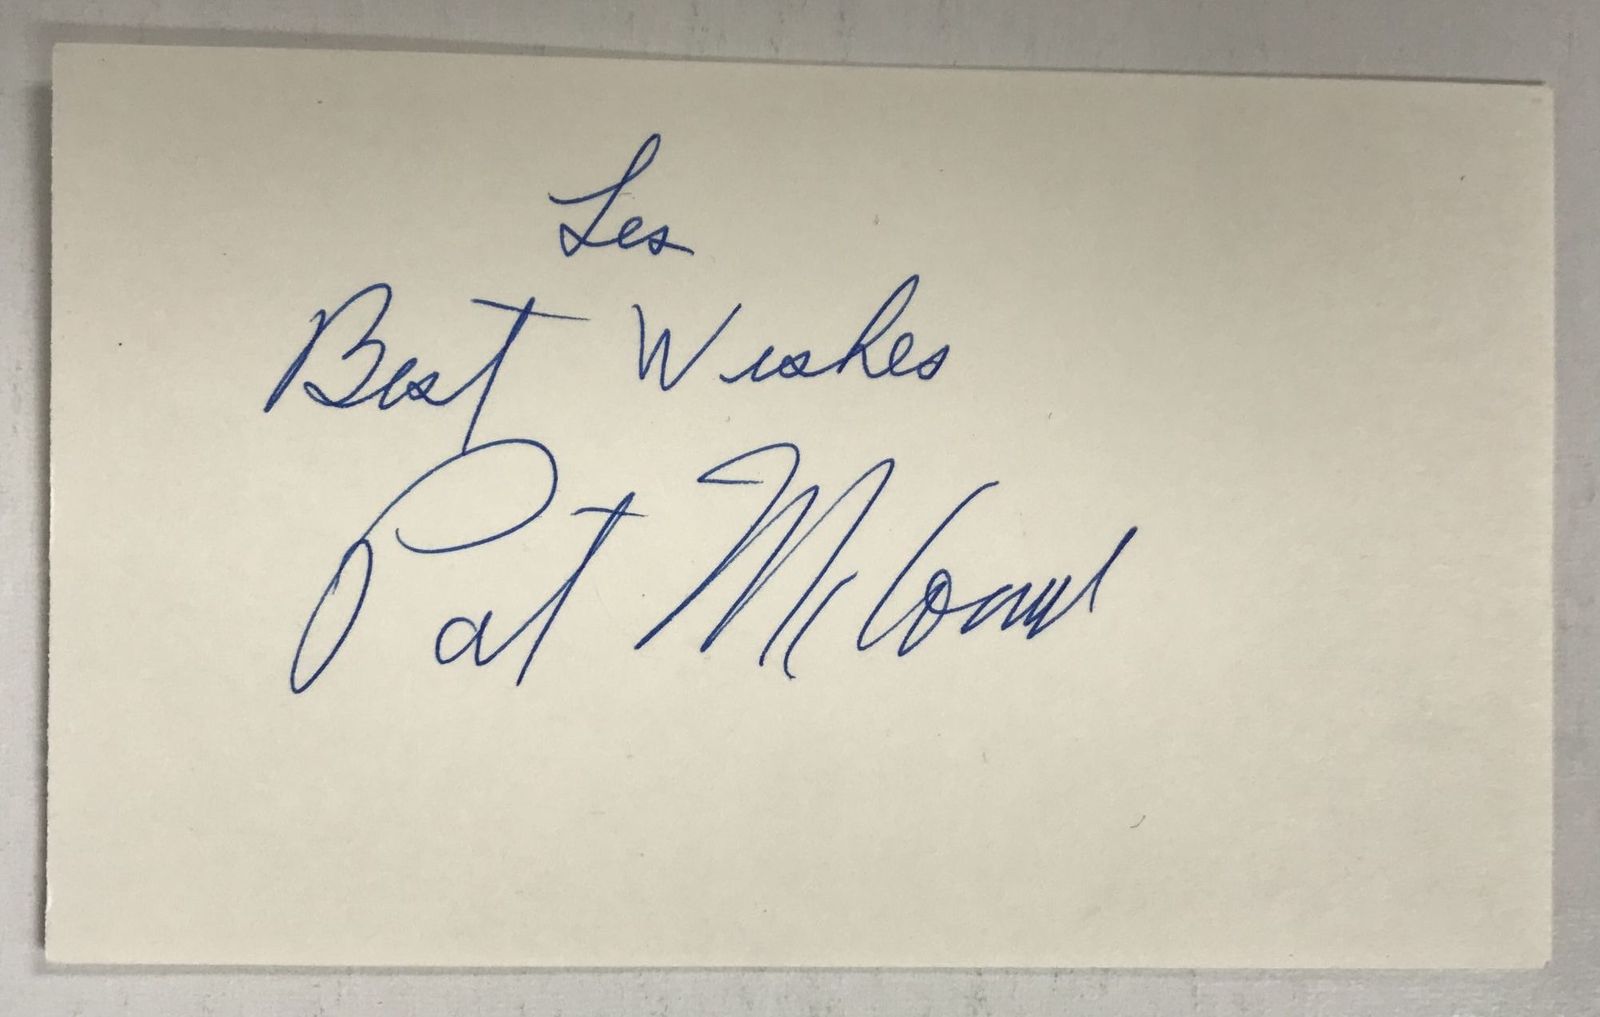 Les
Best Wishes
Pat McCormick